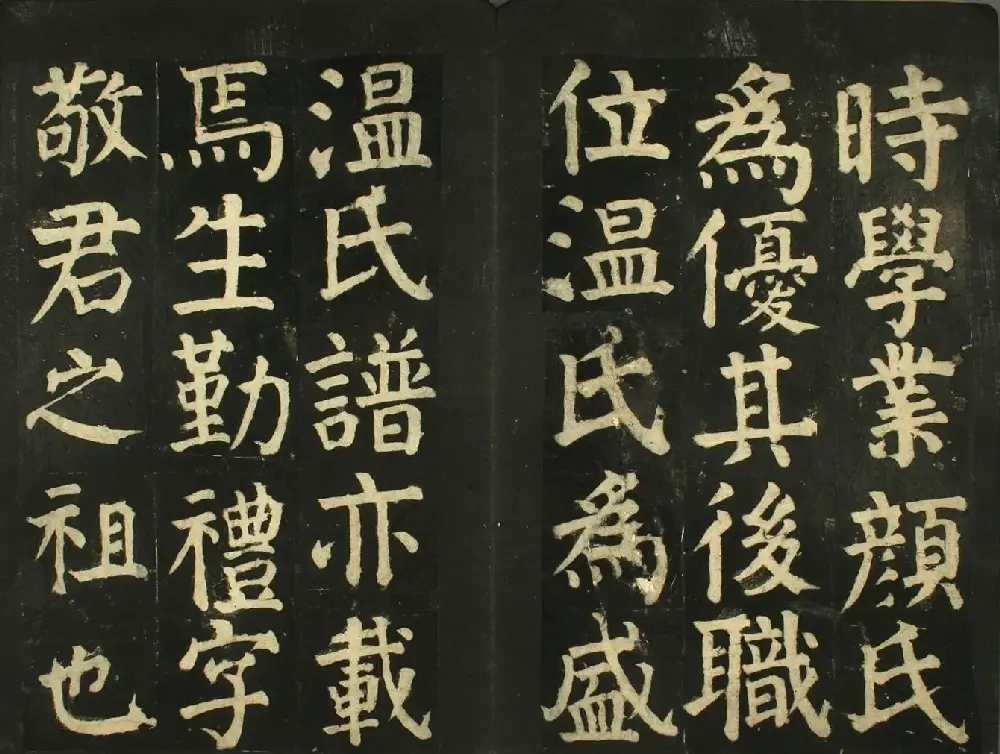 時學業顔氏
為優其後職
位温氏為盛
温氏譜亦載
焉生勤禮字
敬君之祖也